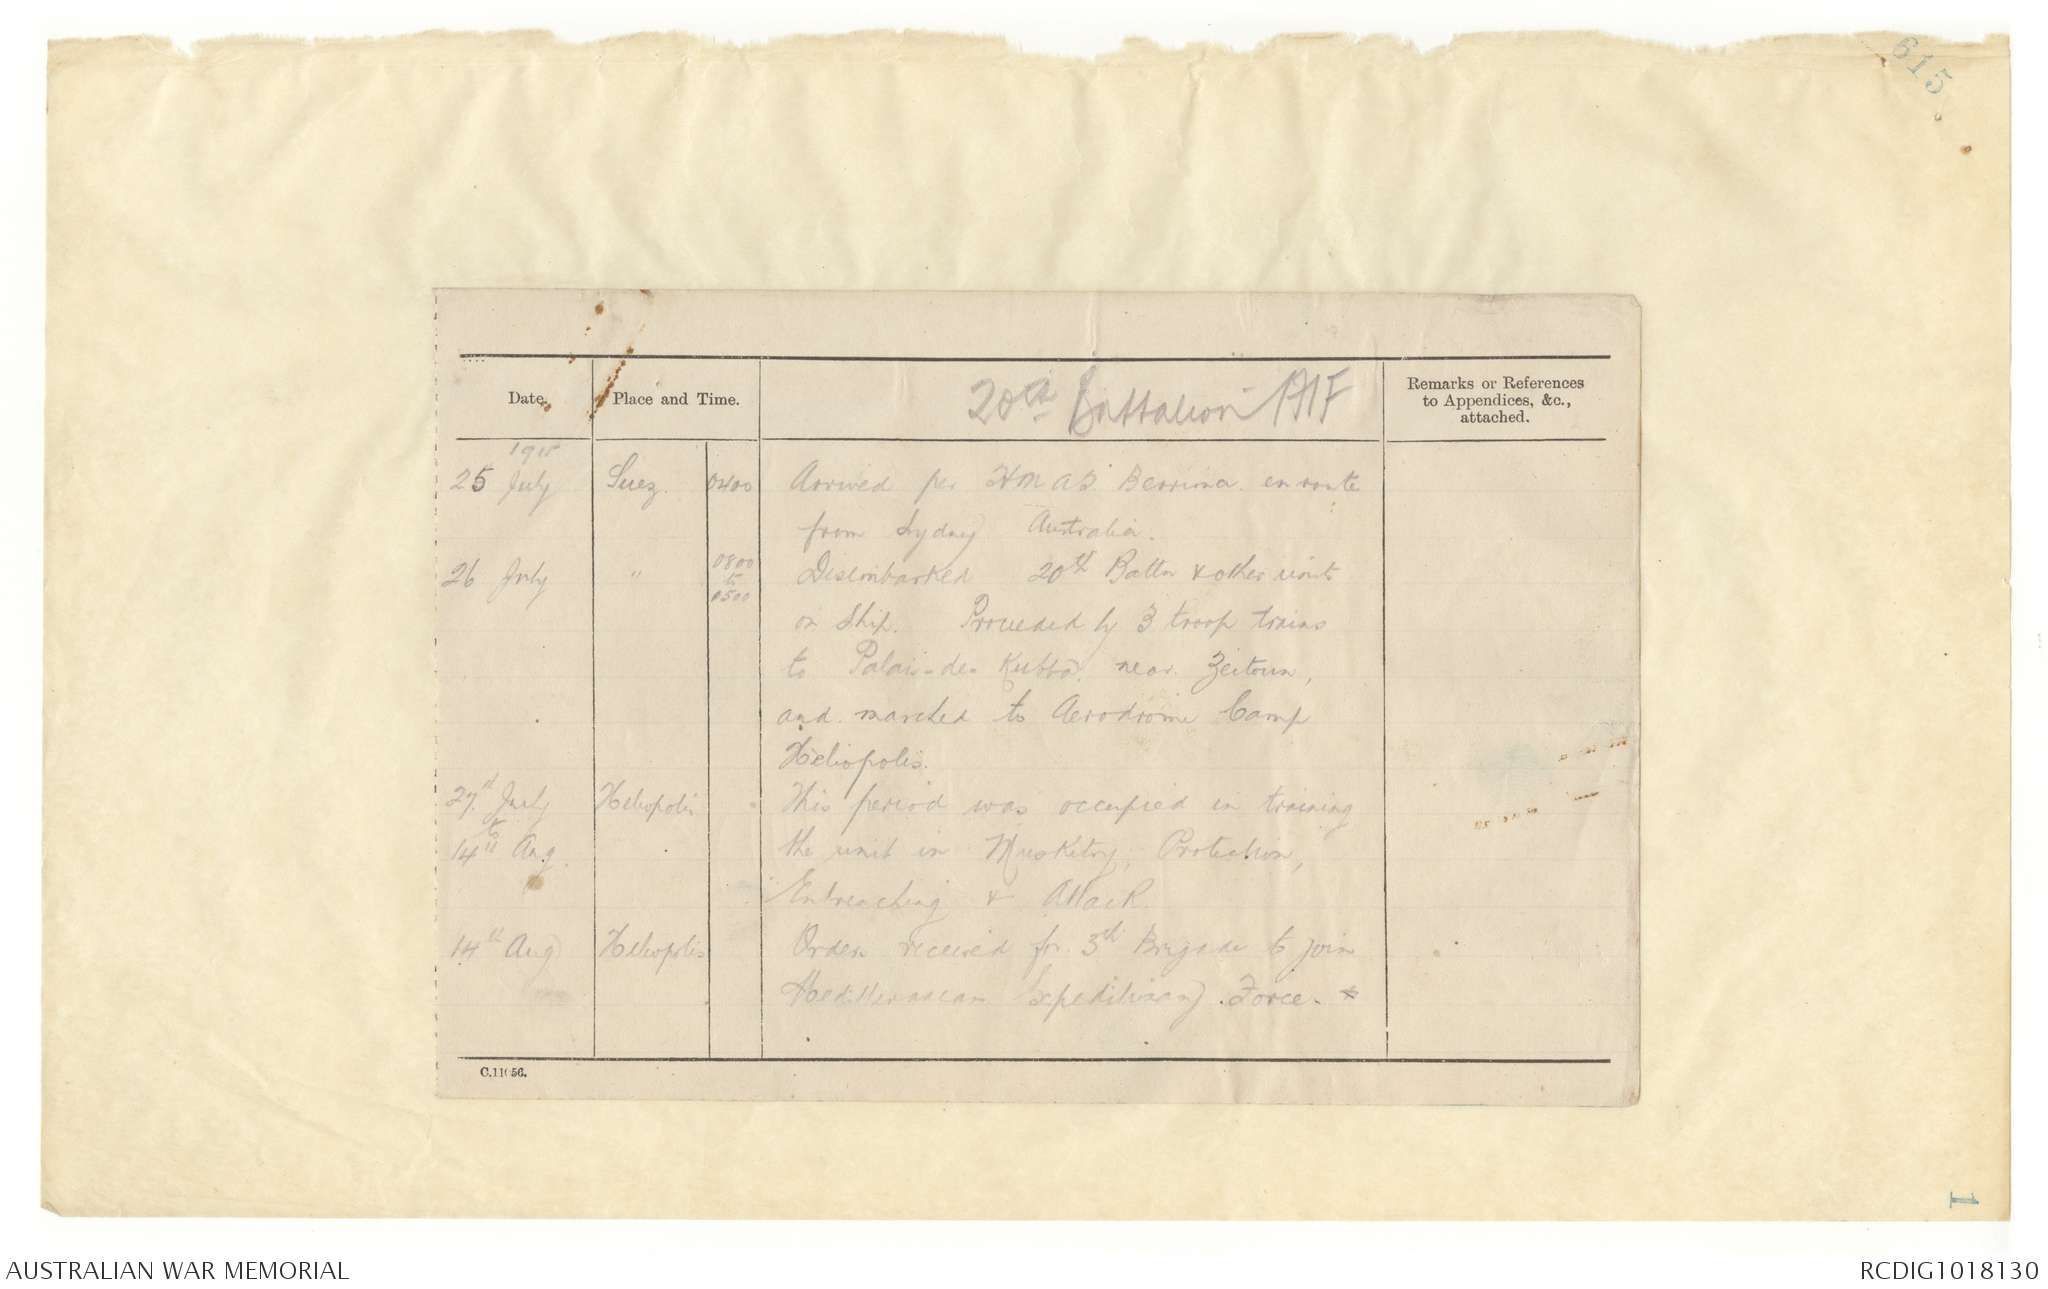 615
20th Battalion AIF
Date. Place and Time. Remarks or References
to Appendices, &c.,
attached.
1915
25 July Suez. 0400 Arrived per HMAS Berrima en route
from Sydney Australia.
26 July " 0800 to 0500 Disembarked 20th Battn & other units
on Ship. Proceeded by 3 troop trains
to Palais-de-Kubba near Zeitoun,
and marched to Aerodrome Camp
Heliopolis.
27th July Heliopolis This period was occupied in training
to
14th Aug. the unit in Musketry, Protection,
Entrenching & Attack
14th Aug Heliopolis Orders received for Brigade to join
Mediterranean Expeditionary Force. *
C.11056.
1
AUSTRALIAN WAR MEMORIAL RCDIG1018130